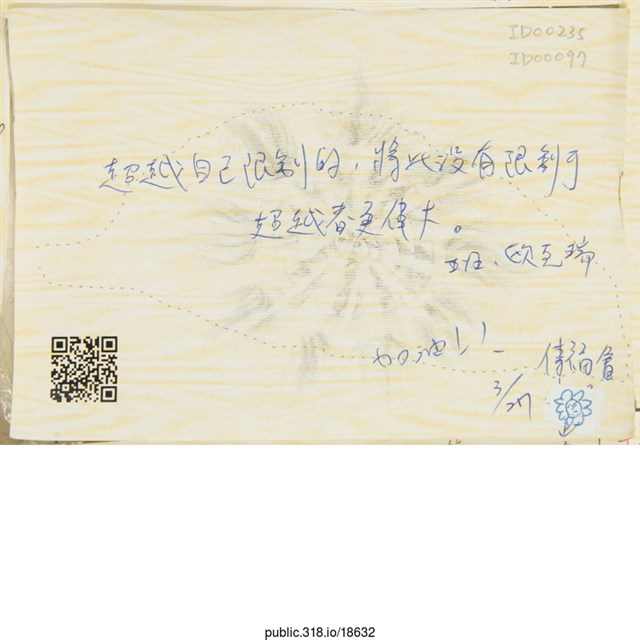 ID00235
ID00097
超越自己限制的，將比沒有限制可
超越者更偉大。
班．歐克瑞
加油！！
3/27
public.318.io/18632